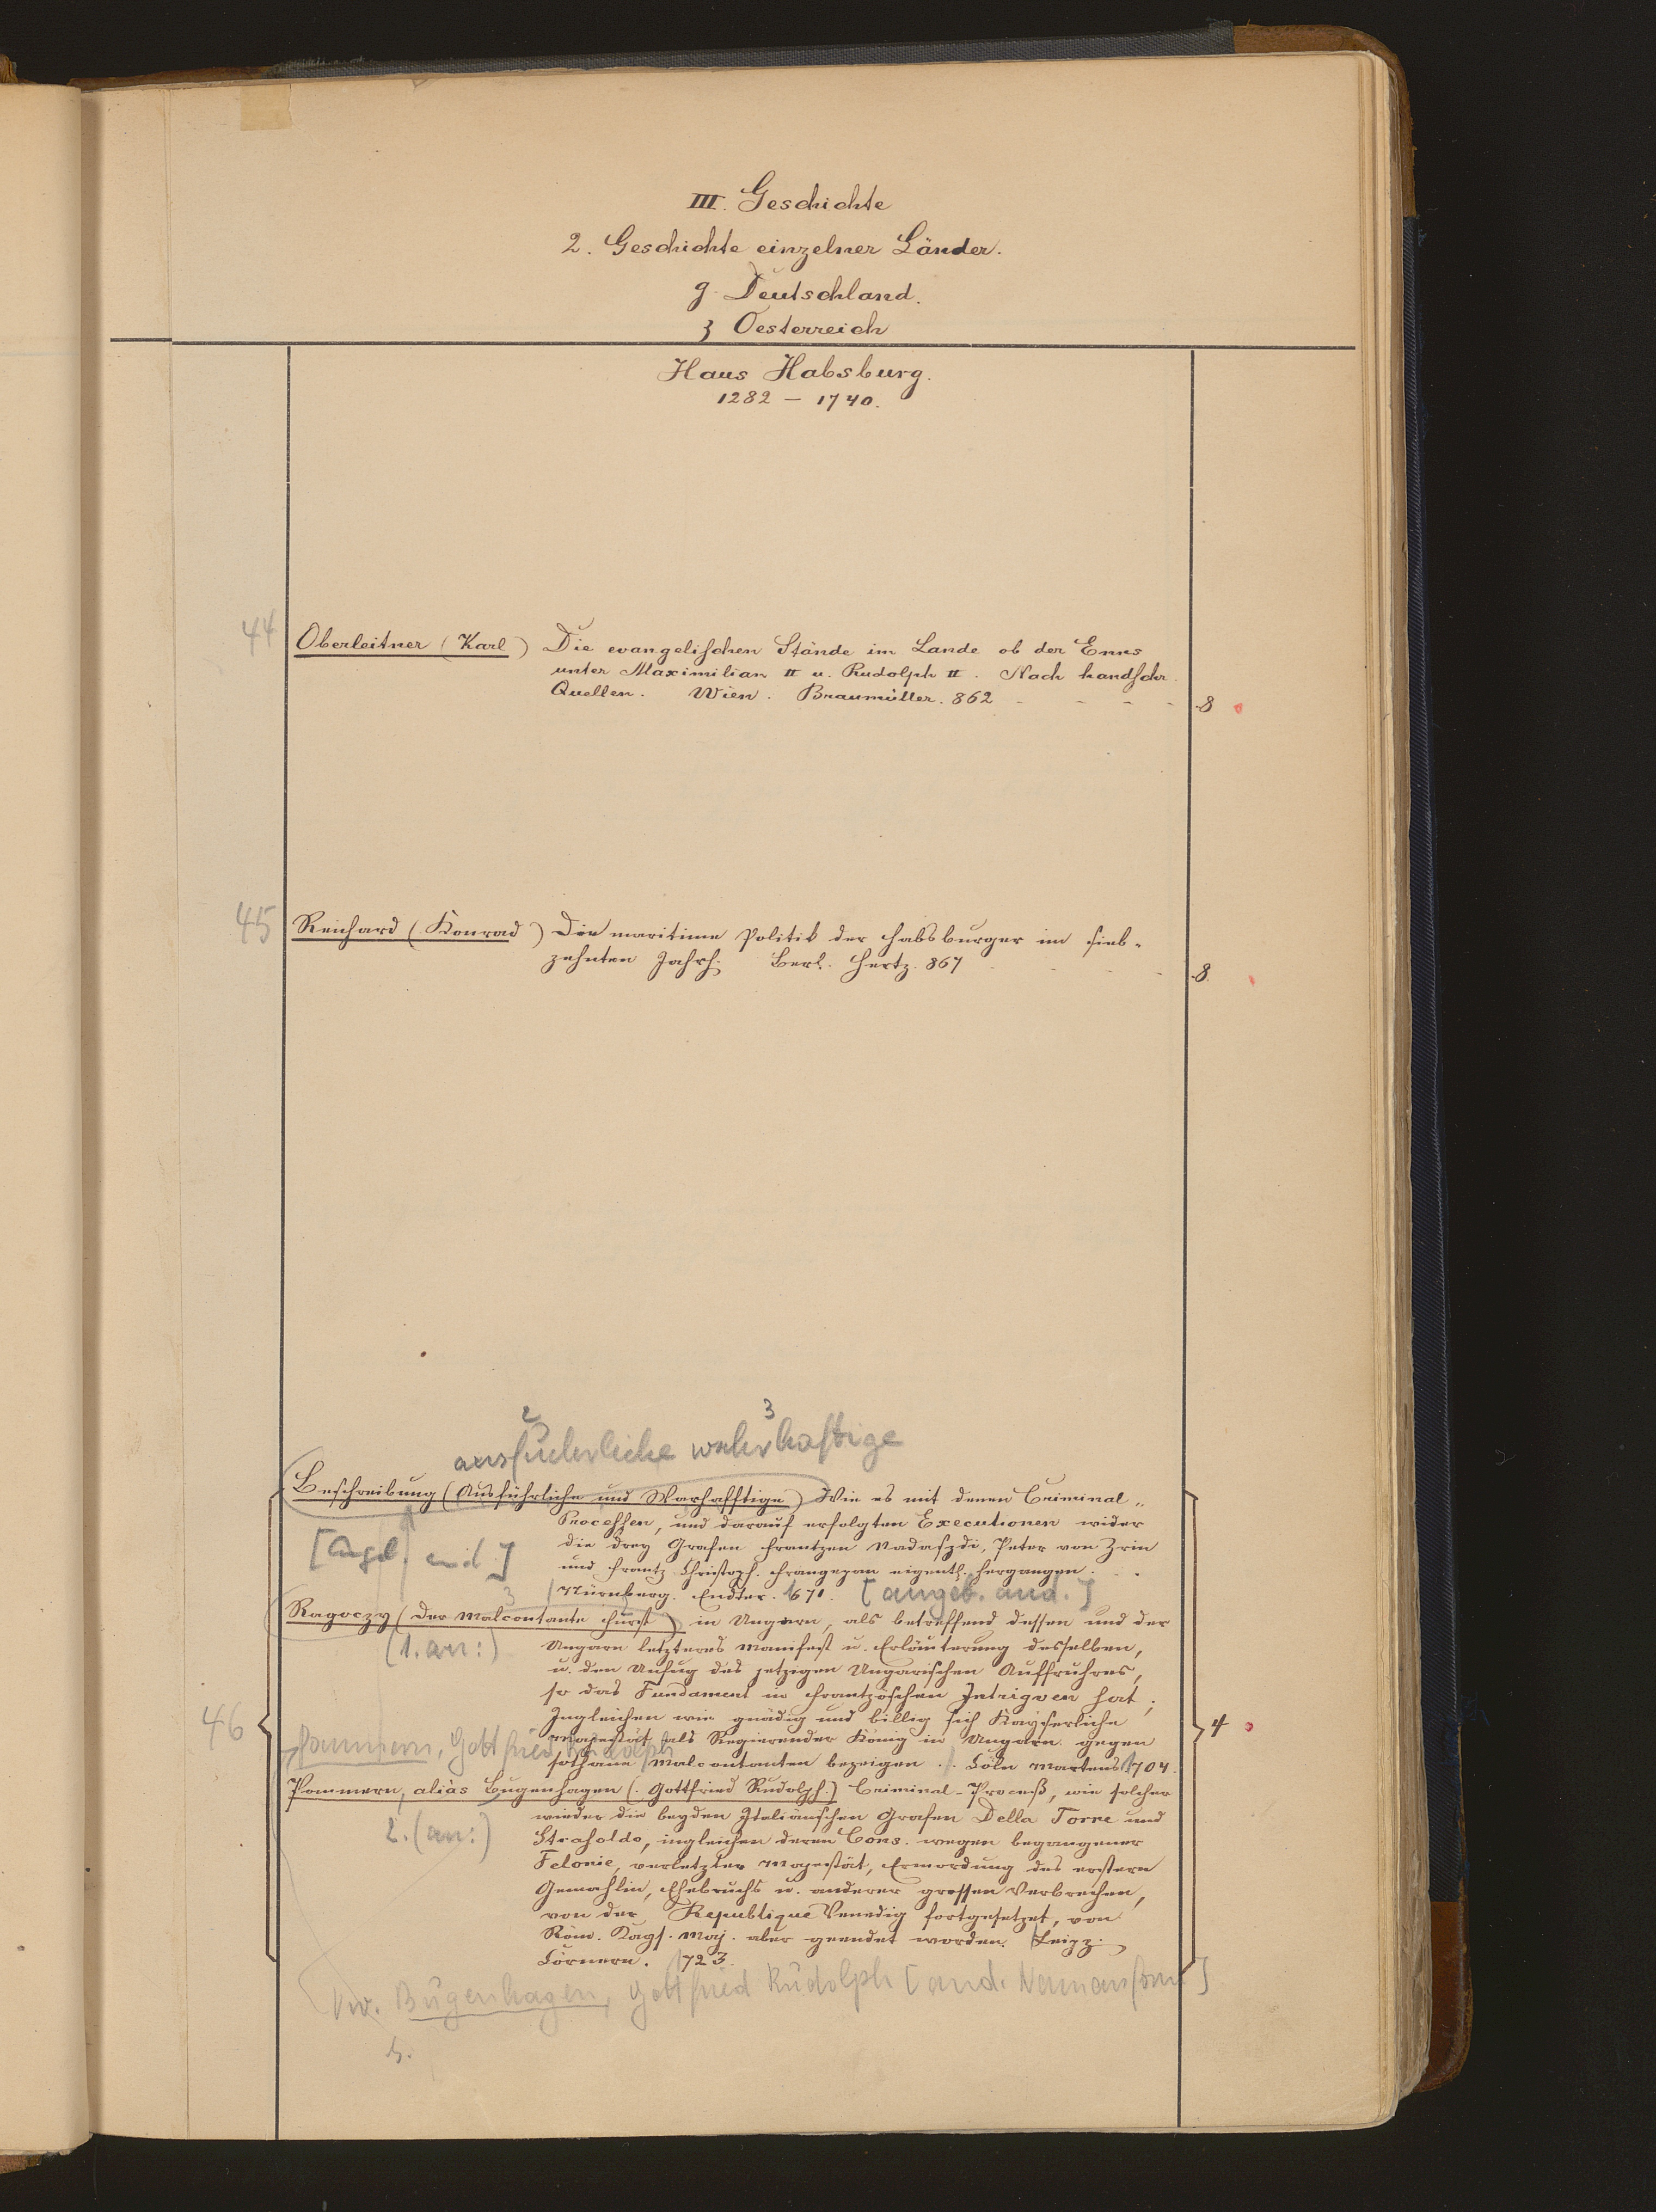 III. Geschichte
2. Geschichte einzelner Länder.
g. Deutschland.
Oesterreich
Haus Habsburg.
1282 – 1740.
44
Oberleitner (Karl) Die evangelischen Stände im Lande ob der Enns
unter Maximilian II u. Rudolph II. Nach handschr.
Quellen. Wien. Braumüller. 862 - - - - 8
45
Reichard (Konrad) Die maritime Politik der Habsburger im sieb-
zehnten Jahrh. Berl. Hertz. 867 - - - 8.
2 3
ausfuehrliche wahrhaftige
Beschreibung (Ausführliche und Warhafftige) Wie es mit denen Criminal-
Processen, und darauf erfolgten Executionen wider
die drey Grafen Frantzen Nadaszdi, Peter von Zrin
und Frantz Christoph. Frangepan eigentl. hergangen.
Nürnberg. Endter. 1671. [angeb. and.]
Ragoczy (Der Malcontante Fürst) in Ungarn, als betreffend dessen und der
(1. an:)
Ungarn letzteres Manifest u. Erläuterung desselben,
u. den Unfug des jetzigen Ungarischen Auffruhres,
so das Fundament in Frantzöschen Intrigven hat,
46
Ingleichen wie gnädig und billig sich Kayserliche
Majestät als Regierender König in Ungarn gegen 4
Pommern, Gottfried Rudolph
sothane Malcontanten bezeigen. Cöln Martens 1704.
Pommern, aliàs Bugenhagen (Gottfried Rudolph.) Criminal-Proceß, wie solcher
wieder die beyden Italiänschen Grafen Della Torre und
2. (an:)
Strasoldo, ingleichen deren Cons. wegen begangener
Felonie, verletzter Majestät, Ermordung des erstern
Gemahlin, Ehebruchs u. anderer grossen Verbrechen,
von der Republique Venedig fortgesetzet, von
Röm. Kays. Maj. aber geendet worden. Leipz.
Cörnern. 1723.
Vw. Bugenhagen, Gottfried Rudolph [and. Namensform]
s.